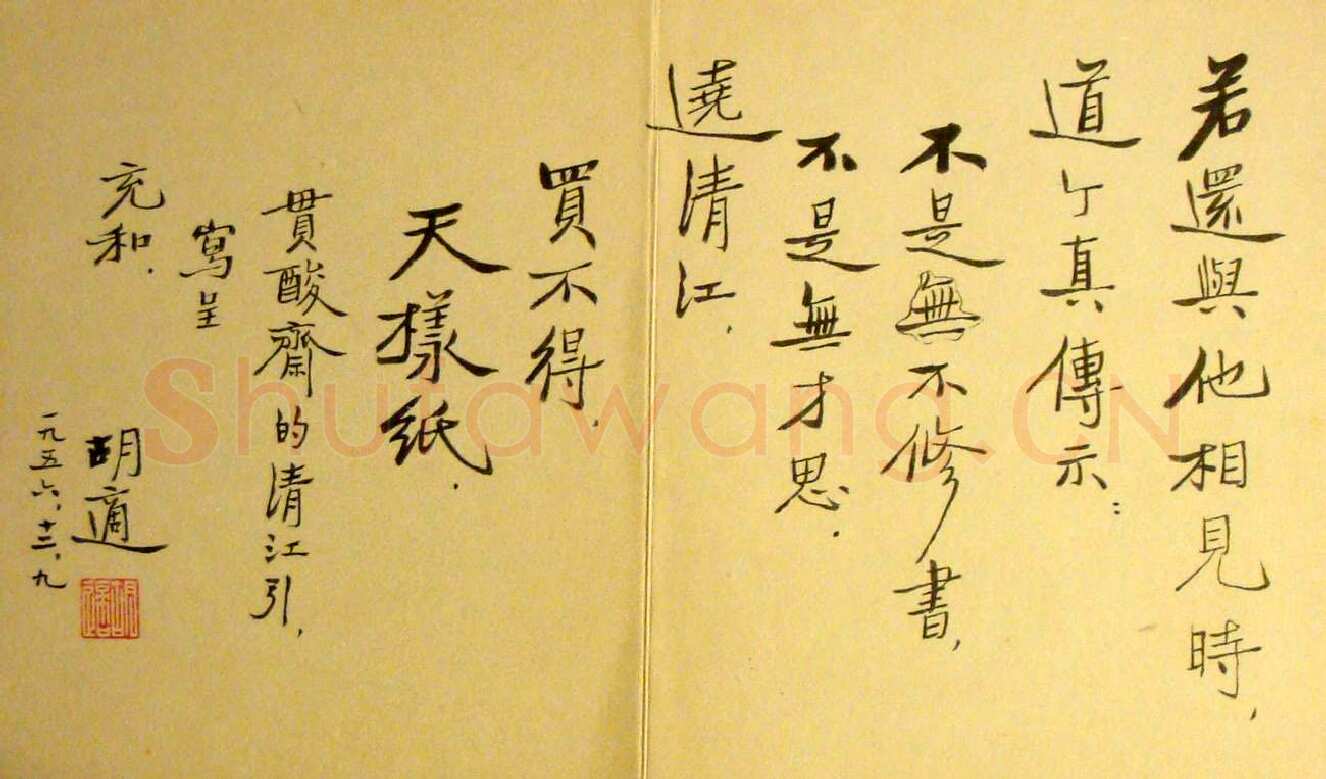 若還與他相見時,
道亇真傳示:
不是無不修書,
不是無才思.
遶清江,
買不得,
天樣紙.
貫酸齋的清江引,
寫呈
充和.
胡適
一九五六、十二、九
Shufawang.CN